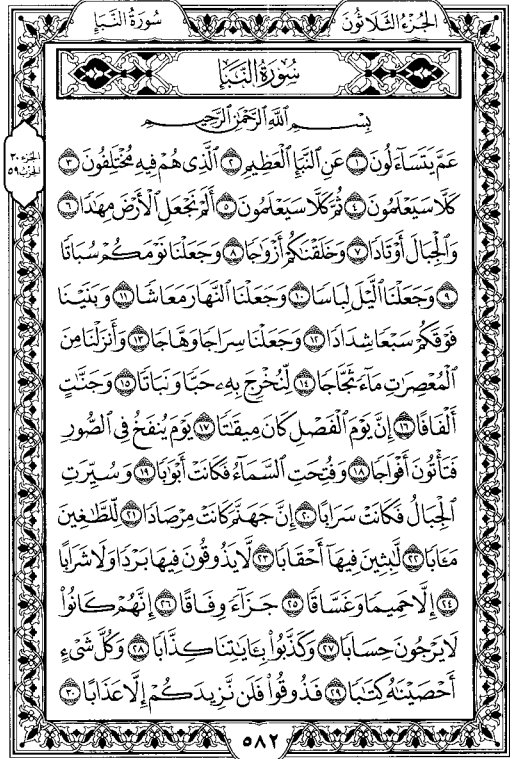 الجُزْءُ الثَّلَاثُونَ
سُورَةُ النَّبَإِ
سُورَةُ النَّبَإِ
بِسْمِ ٱللَّهِ ٱلرَّحْمَٰنِ ٱلرَّحِيمِ
الجزء ٣٠
الحزب ٥٩
عَمَّ يَتَسَآءَلُونَ ١ عَنِ ٱلنَّبَإِ ٱلْعَظِيمِ ٢ ٱلَّذِى هُمْ فِيهِ مُخْتَلِفُونَ ٣
كَلَّا سَيَعْلَمُونَ ٤ ثُمَّ كَلَّا سَيَعْلَمُونَ ٥ أَلَمْ نَجْعَلِ ٱلْأَرْضَ مِهَٰدًا ٦
وَٱلْجِبَالَ أَوْتَادًا ٧ وَخَلَقْنَٰكُمْ أَزْوَٰجًا ٨ وَجَعَلْنَا نَوْمَكُمْ سُبَاتًا
٩ وَجَعَلْنَا ٱلَّيْلَ لِبَاسًا ١٠ وَجَعَلْنَا ٱلنَّهَارَ مَعَاشًا ١١ وَبَنَيْنَا
فَوْقَكُمْ سَبْعًا شِدَادًا ١٢ وَجَعَلْنَا سِرَاجًا وَهَّاجًا ١٣ وَأَنزَلْنَا مِنَ
ٱلْمُعْصِرَٰتِ مَآءً ثَجَّاجًا ١٤ لِّنُخْرِجَ بِهِۦ حَبًّا وَنَبَاتًا ١٥ وَجَنَّٰتٍ
أَلْفَافًا ١٦ إِنَّ يَوْمَ ٱلْفَصْلِ كَانَ مِيقَٰتًا ١٧ يَوْمَ يُنفَخُ فِى ٱلصُّورِ
فَتَأْتُونَ أَفْوَاجًا ١٨ وَفُتِحَتِ ٱلسَّمَآءُ فَكَانَتْ أَبْوَٰبًا ١٩ وَسُيِّرَتِ
ٱلْجِبَالُ فَكَانَتْ سَرَابًا ٢٠ إِنَّ جَهَنَّمَ كَانَتْ مِرْصَادًا ٢١ لِّلطَّٰغِينَ
مَـَٔابًا ٢٢ لَّٰبِثِينَ فِيهَآ أَحْقَابًا ٢٣ لَّا يَذُوقُونَ فِيهَا بَرْدًا وَلَا شَرَابًا
٢٤ إِلَّا حَمِيمًا وَغَسَّاقًا ٢٥ جَزَآءً وِفَاقًا ٢٦ إِنَّهُمْ كَانُوا۟
لَا يَرْجُونَ حِسَابًا ٢٧ وَكَذَّبُوا۟ بِـَٔايَٰتِنَا كِذَّابًا ٢٨ وَكُلَّ شَىْءٍ
أَحْصَيْنَٰهُ كِتَٰبًا ٢٩ فَذُوقُوا۟ فَلَن نَّزِيدَكُمْ إِلَّا عَذَابًا ٣٠
٥٨٢